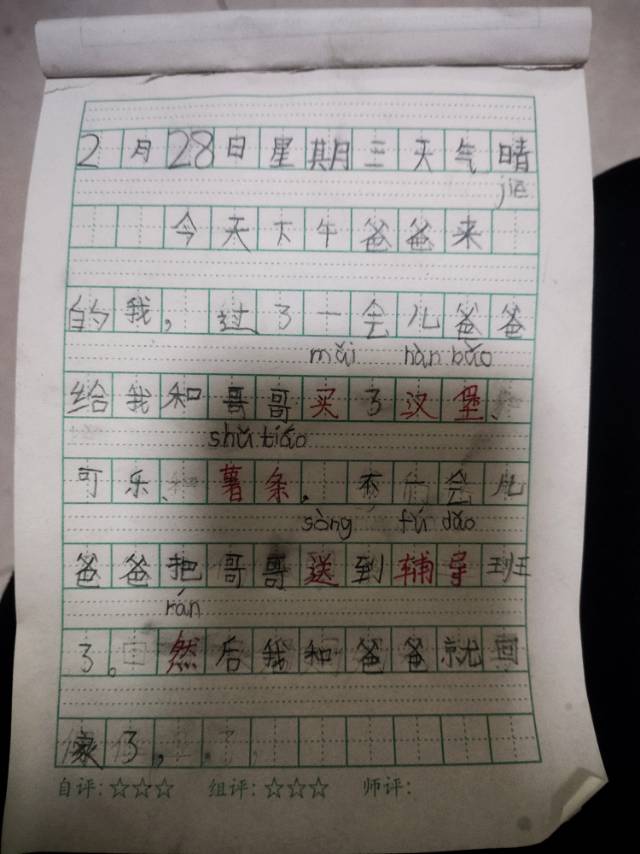 2月28日星期三天气晴
jiē
今天下午爸爸来
的我，过了一会儿爸爸
mǎi hàn bǎo
给我和哥哥买了汉堡、
shǔ tiáo
可乐、薯条，不一会儿
sòng fǔ dǎo
爸爸把哥哥送到辅导班
rán
了。然后我和爸爸就回
家了，
自评：☆☆☆ 组评：☆☆☆ 师评：